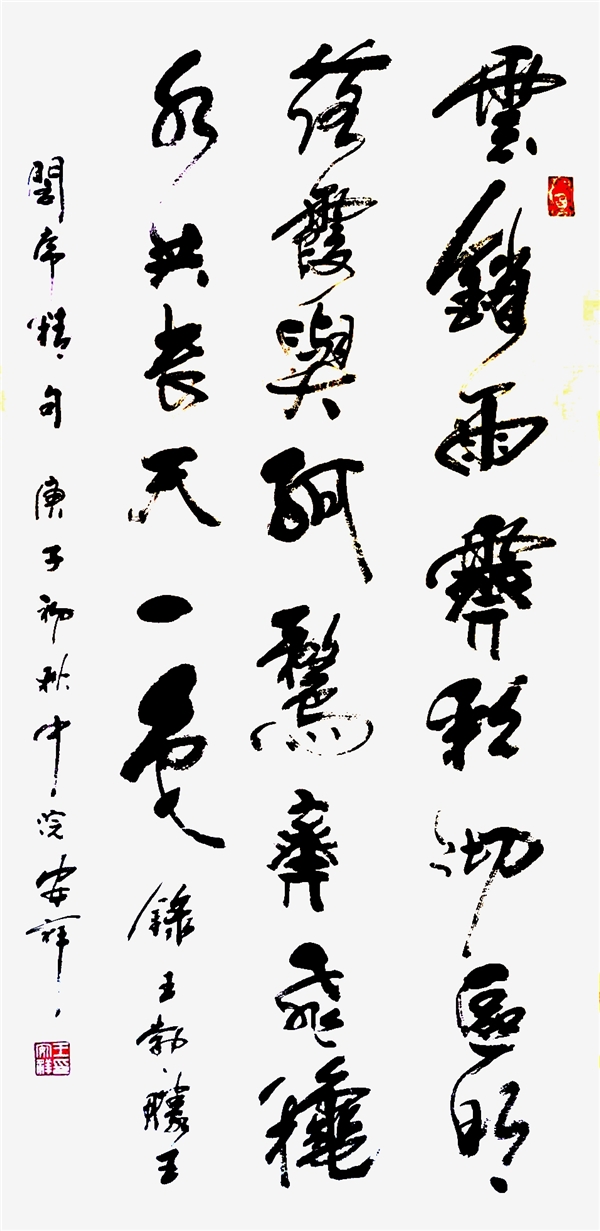 雲銷雨霽彩彻區明
落霞與孤鶩齊飛穐
水共長天一色 錄王勃滕王
閣序精句 庚子初秋中院安祥
王印安祥